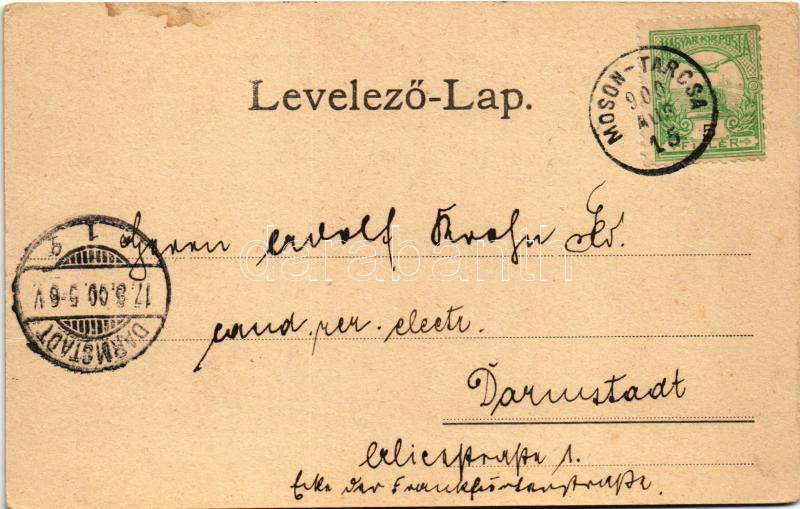 MAGYAR KIR. POSTA
MOSON-TARCSA
900
AUG
15
FILLÉR
Levelező-Lap.
Herrn Adolf Krohn
cand. rer. electr.
Darmstadt
Alicestraße 1.
Ecke der Frankfurterstraße.
DARMSTADT
17.8.00. 5-6 V.
1
darabanth